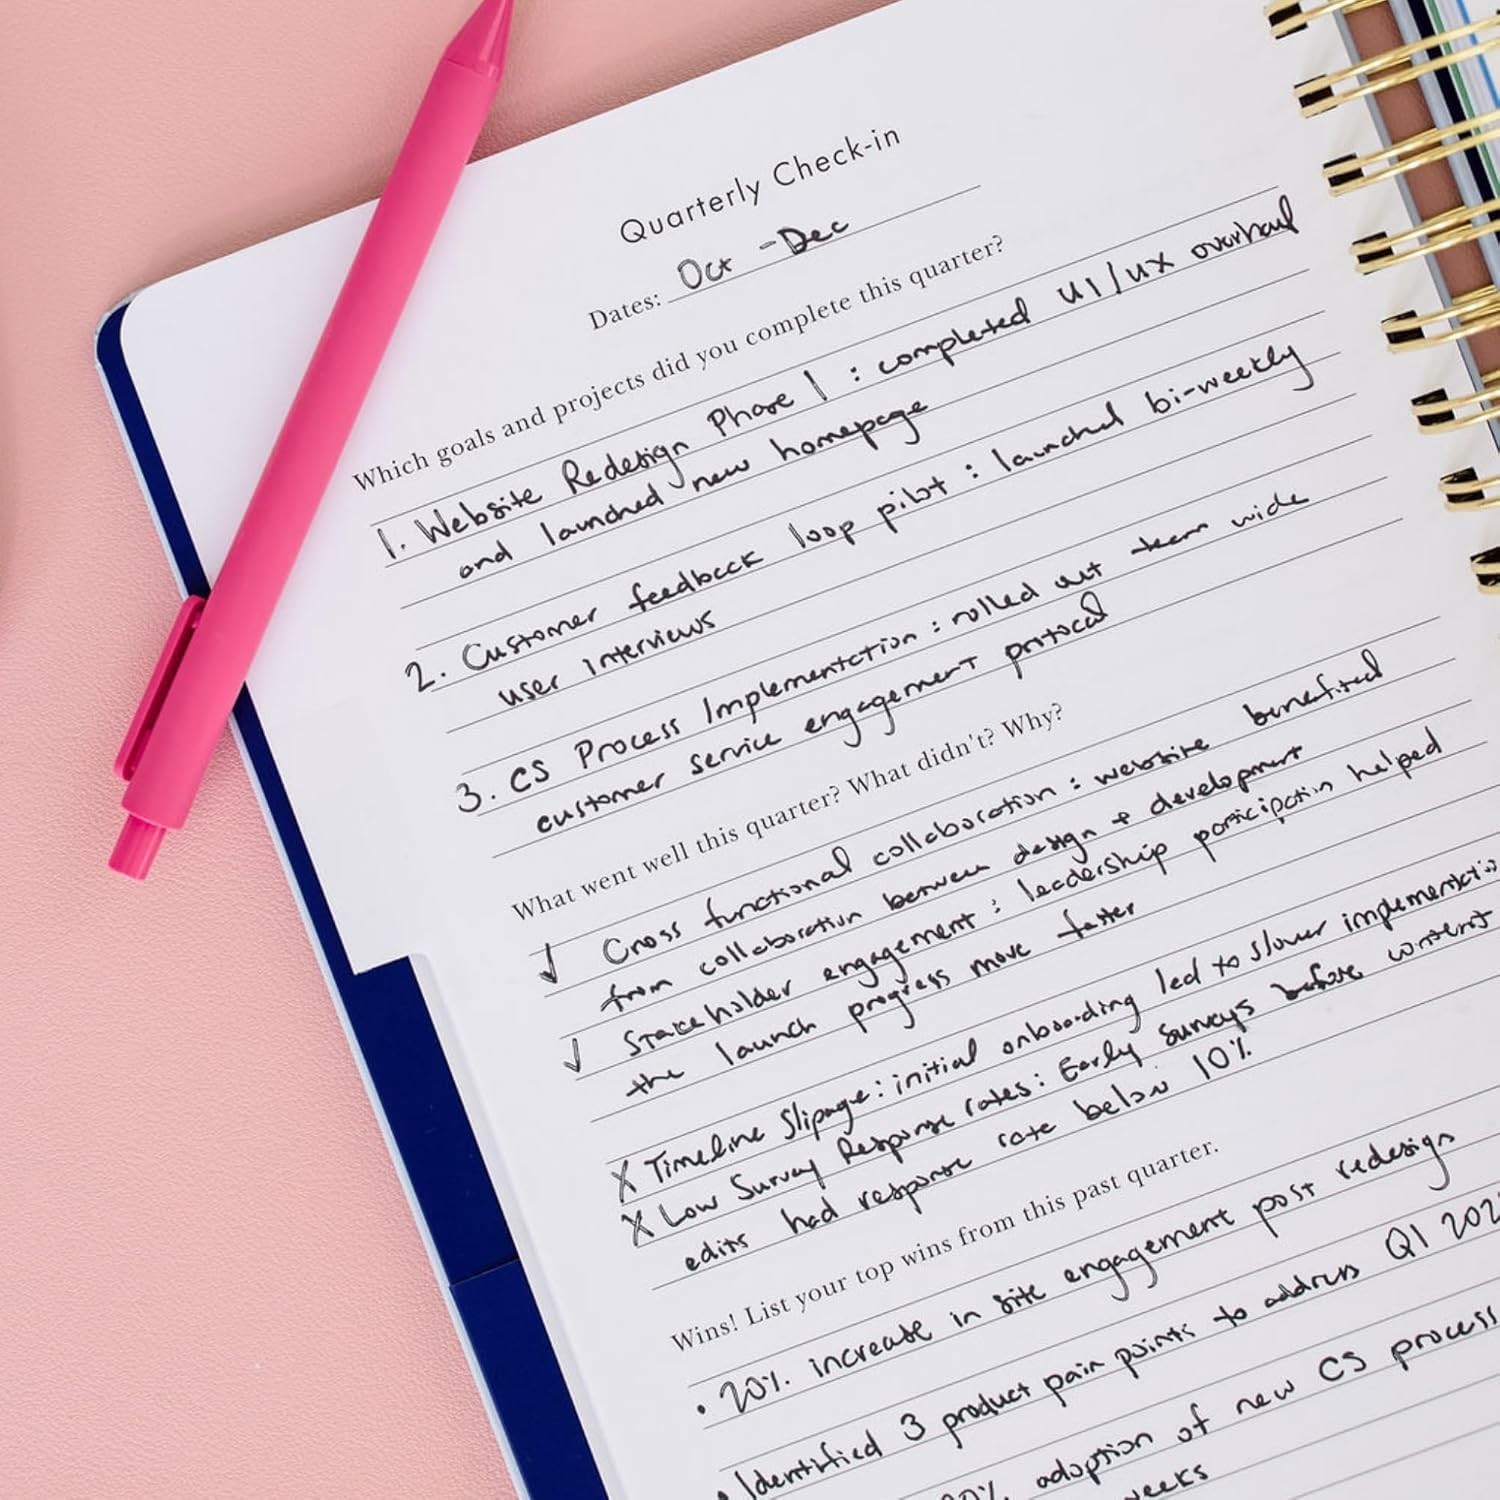 Quarterly Check-in
Dates: Oct - Dec
Which goals and projects did you complete this quarter?
1. Website Redesign Phase 1 : completed UI/UX overhaul
and launched new homepage
2. Customer feedback loop pilot : launched bi-weekly
user interviews
3. CS Process Implementation : rolled out team wide
customer service engagement protocol
What went well this quarter? What didn't? Why?
✓ Cross functional collaboration : website benefited
from collaboration between design + development
✓ Stakeholder engagement : leadership participation helped
the launch progress move faster
X Timeline Slipage : initial onboarding led to slower implementatio
X Low Survey Response rates : Early surveys before content
edits had response rate below 10%
Wins! List your top wins from this past quarter.
• 20% increase in site engagement post redesign
• Identified 3 product pain points to address Q1 202
0% adoption of new CS process
weeks